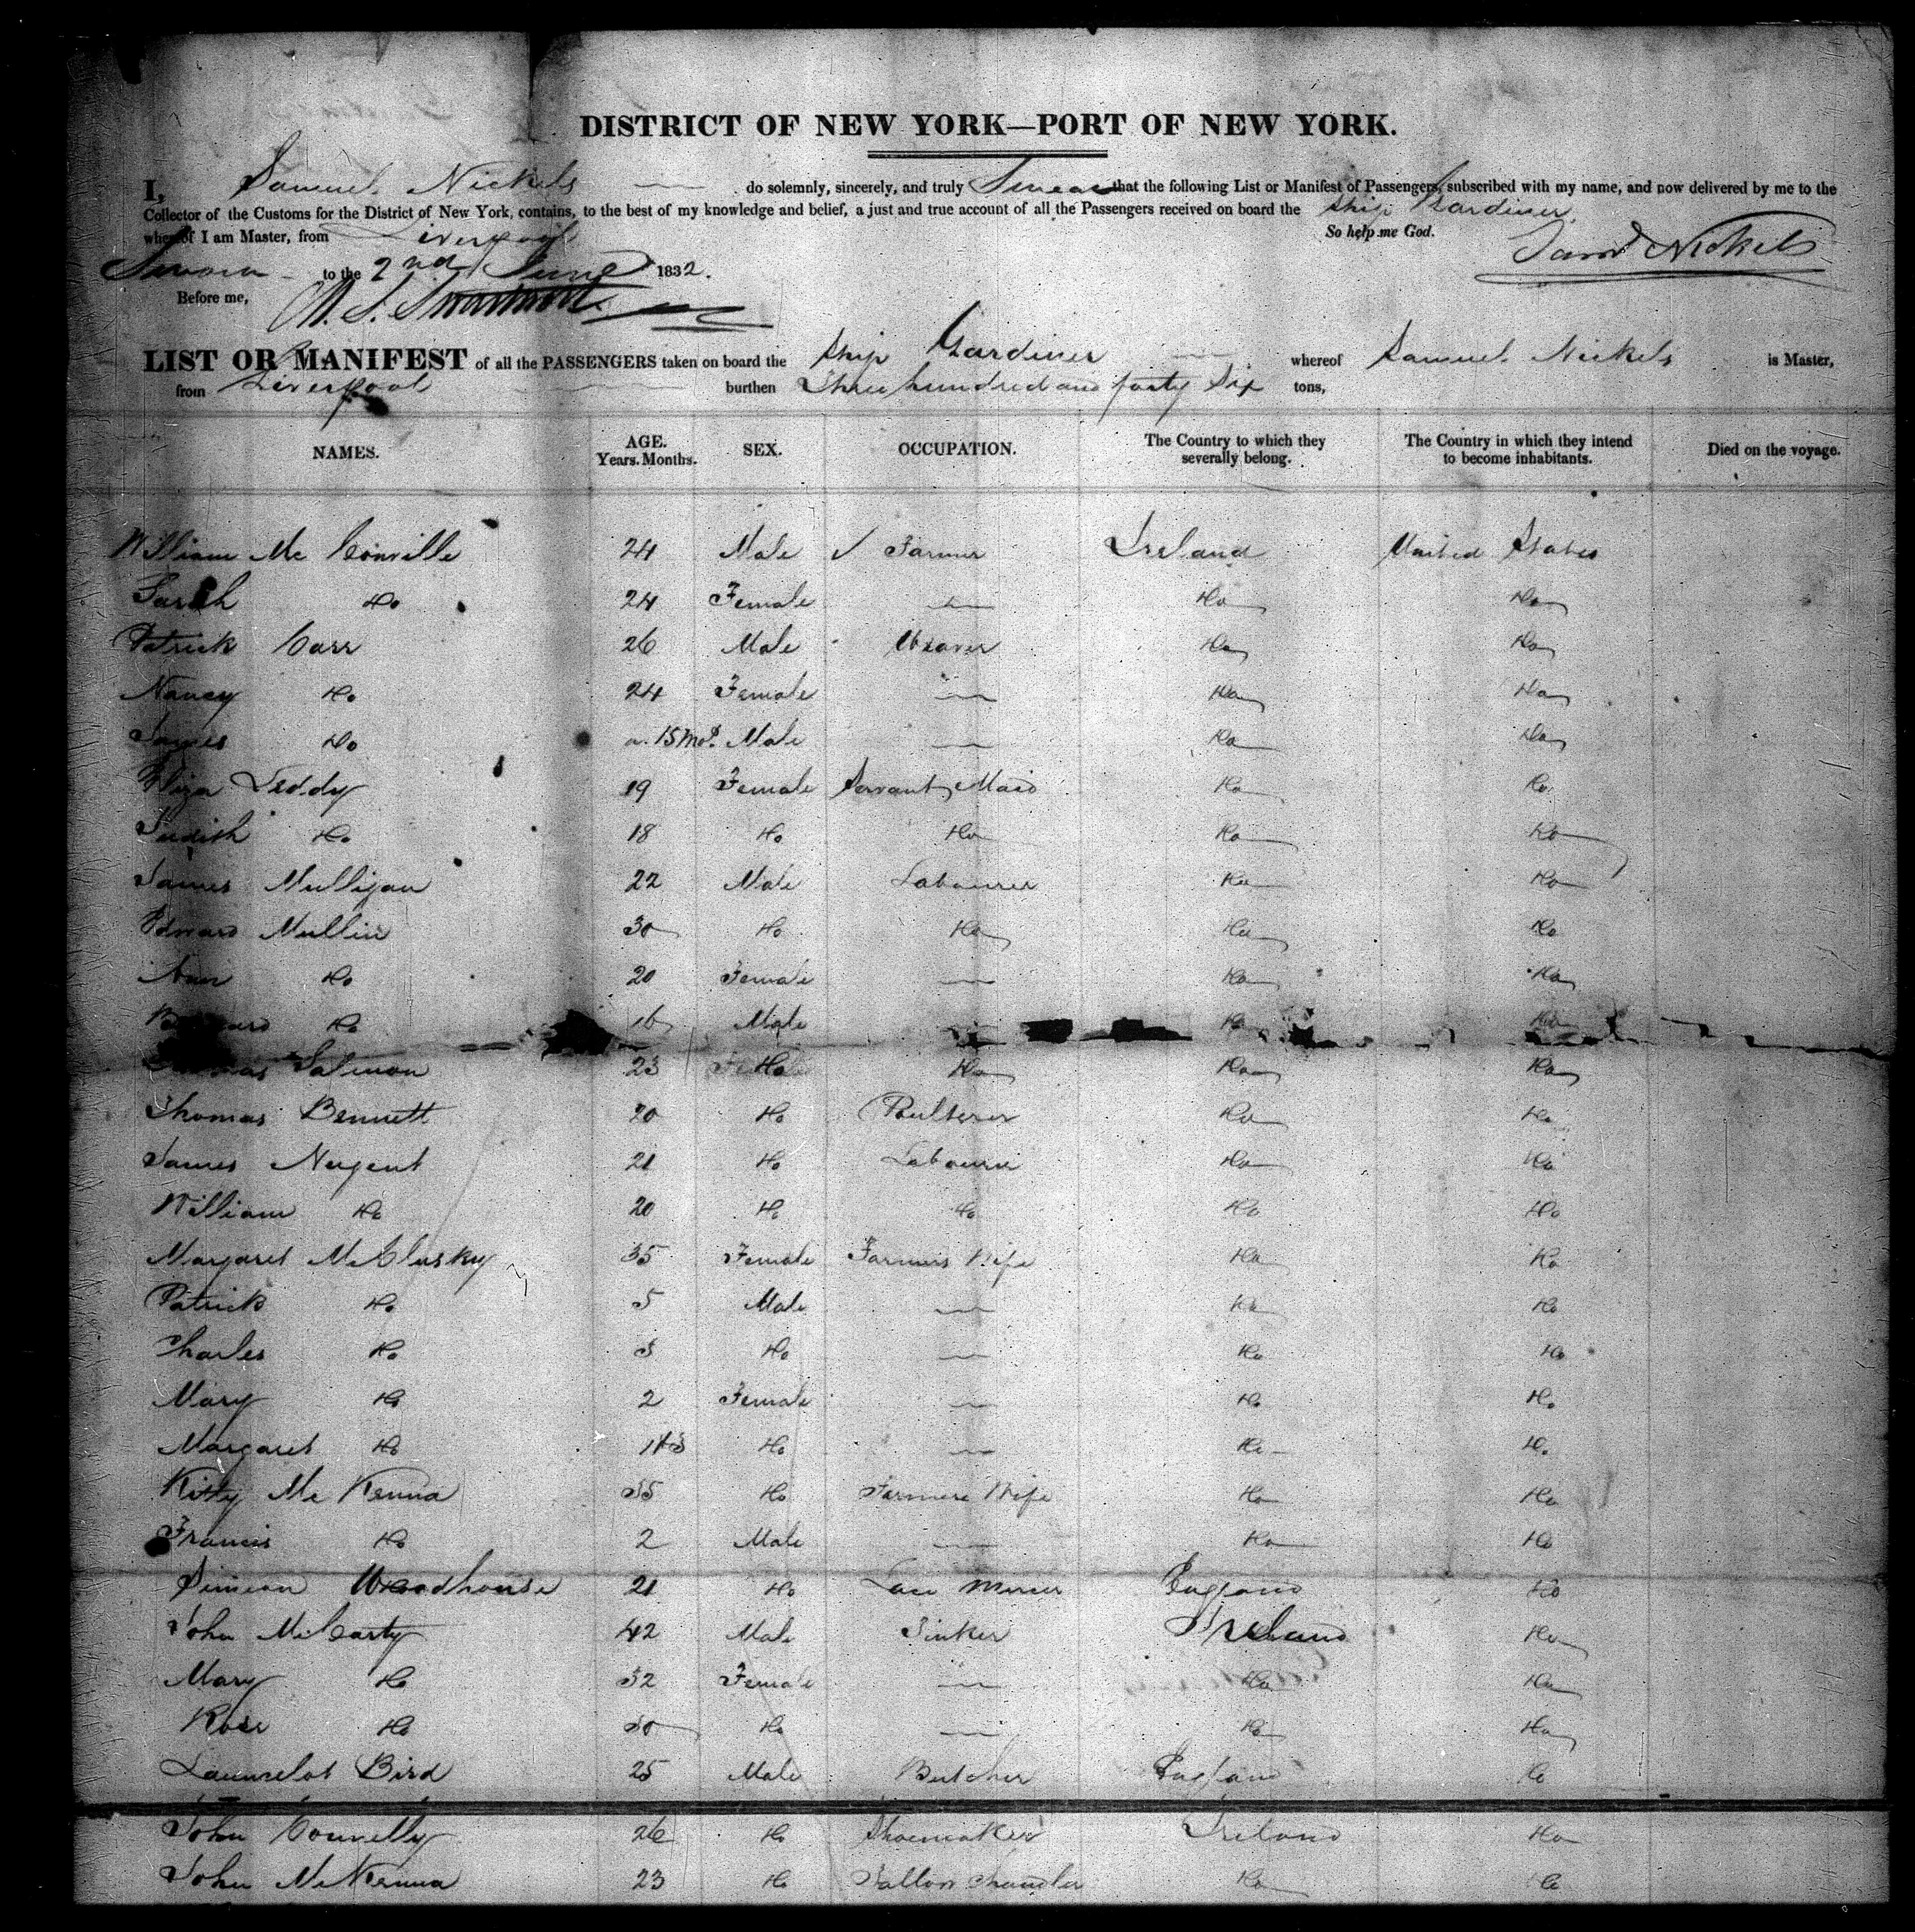 DISTRICT OF NEW YORK—PORT OF NEW YORK.
I, Samuel Nickels do solemnly, sincerely, and truly Swear that the following List or Manifest of Passengers, subscribed with my name, and now delivered by me to the
Collector of the Customs for the District of New York, contains, to the best of my knowledge and belief, a just and true account of all the Passengers received on board the Ship Gardiner
whereof I am Master, from Liverpool So help me God.
Sworn to the 2nd June 1832. Saml Nickels
Before me,
LIST OR MANIFEST of all the PASSENGERS taken on board the Ship Gardiner whereof Samuel Nickels is Master,
from Liverpool burthen Three hundred and forty Six tons,
NAMES. AGE. Years. Months. SEX. OCCUPATION. The Country to which they severally belong. The Country in which they intend to become inhabitants. Died on the voyage.
William Mc Conville 24 Male Farmer Ireland United States
Sarah Do 24 Female — Do Do
Patrick Carr 26 Male Weaver Do Do
Nancy Do 24 Female — Do Do
James Do 15 Mos. Male — Do Do
Eliza Leddy 19 Female Servant Maid Do Do
Judith Do 18 Do Do Do Do
James Mulligan 22 Male Labourer Do Do
Edward Mullin 30 Do Do Do Do
Ann Do 20 Female — Do Do
Do 16 Male Do Do
Salmon 23 Do Do Do Do
Thomas Bennett 20 Do Poulterer Do Do
James Nugent 21 Do Labourer Do Do
William Do 20 Do Do Do Do
Margaret McClusky 35 Female Farmers Wife Do Do
Patrick Do 5 Male — Do Do
Charles Do 3 Do — Do Do
Mary Do 2 Female — Do Do
Margaret Do Do — Do Do
Kitty Mc Kenna 35 Do Farmers Wife Do Do
Francis Do 2 Male — Do Do
Simeon Woodhouse 21 Do Lace Mercer England Do
John McCarty 42 Male Tinker Ireland Do
Mary Do 32 Female — Do Do
Rose Do 30 Do — Do Do
Launcelot Bird 25 Male Butcher England Do
John Connelly 26 Do Shoemaker Ireland Do
John McKenna 23 Do Tallow Chandler Do Do